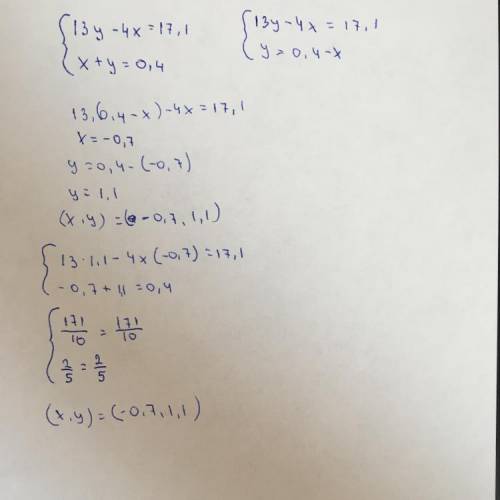 13y - 4x = 17,1
x + y = 0,4
13y - 4x = 17,1
y = 0,4 - x
13,(0,4 - x) - 4x = 17,1
x = -0,7
y = 0,4 - (-0,7)
y = 1,1
(x,y) = (-0,7, 1,1)
13 · 1,1 - 4x(-0,7) = 17,1
-0,7 + 1,1 = 0,4
171/10 = 171/10
2/5 = 2/5
(x,y) = (-0,7, 1,1)